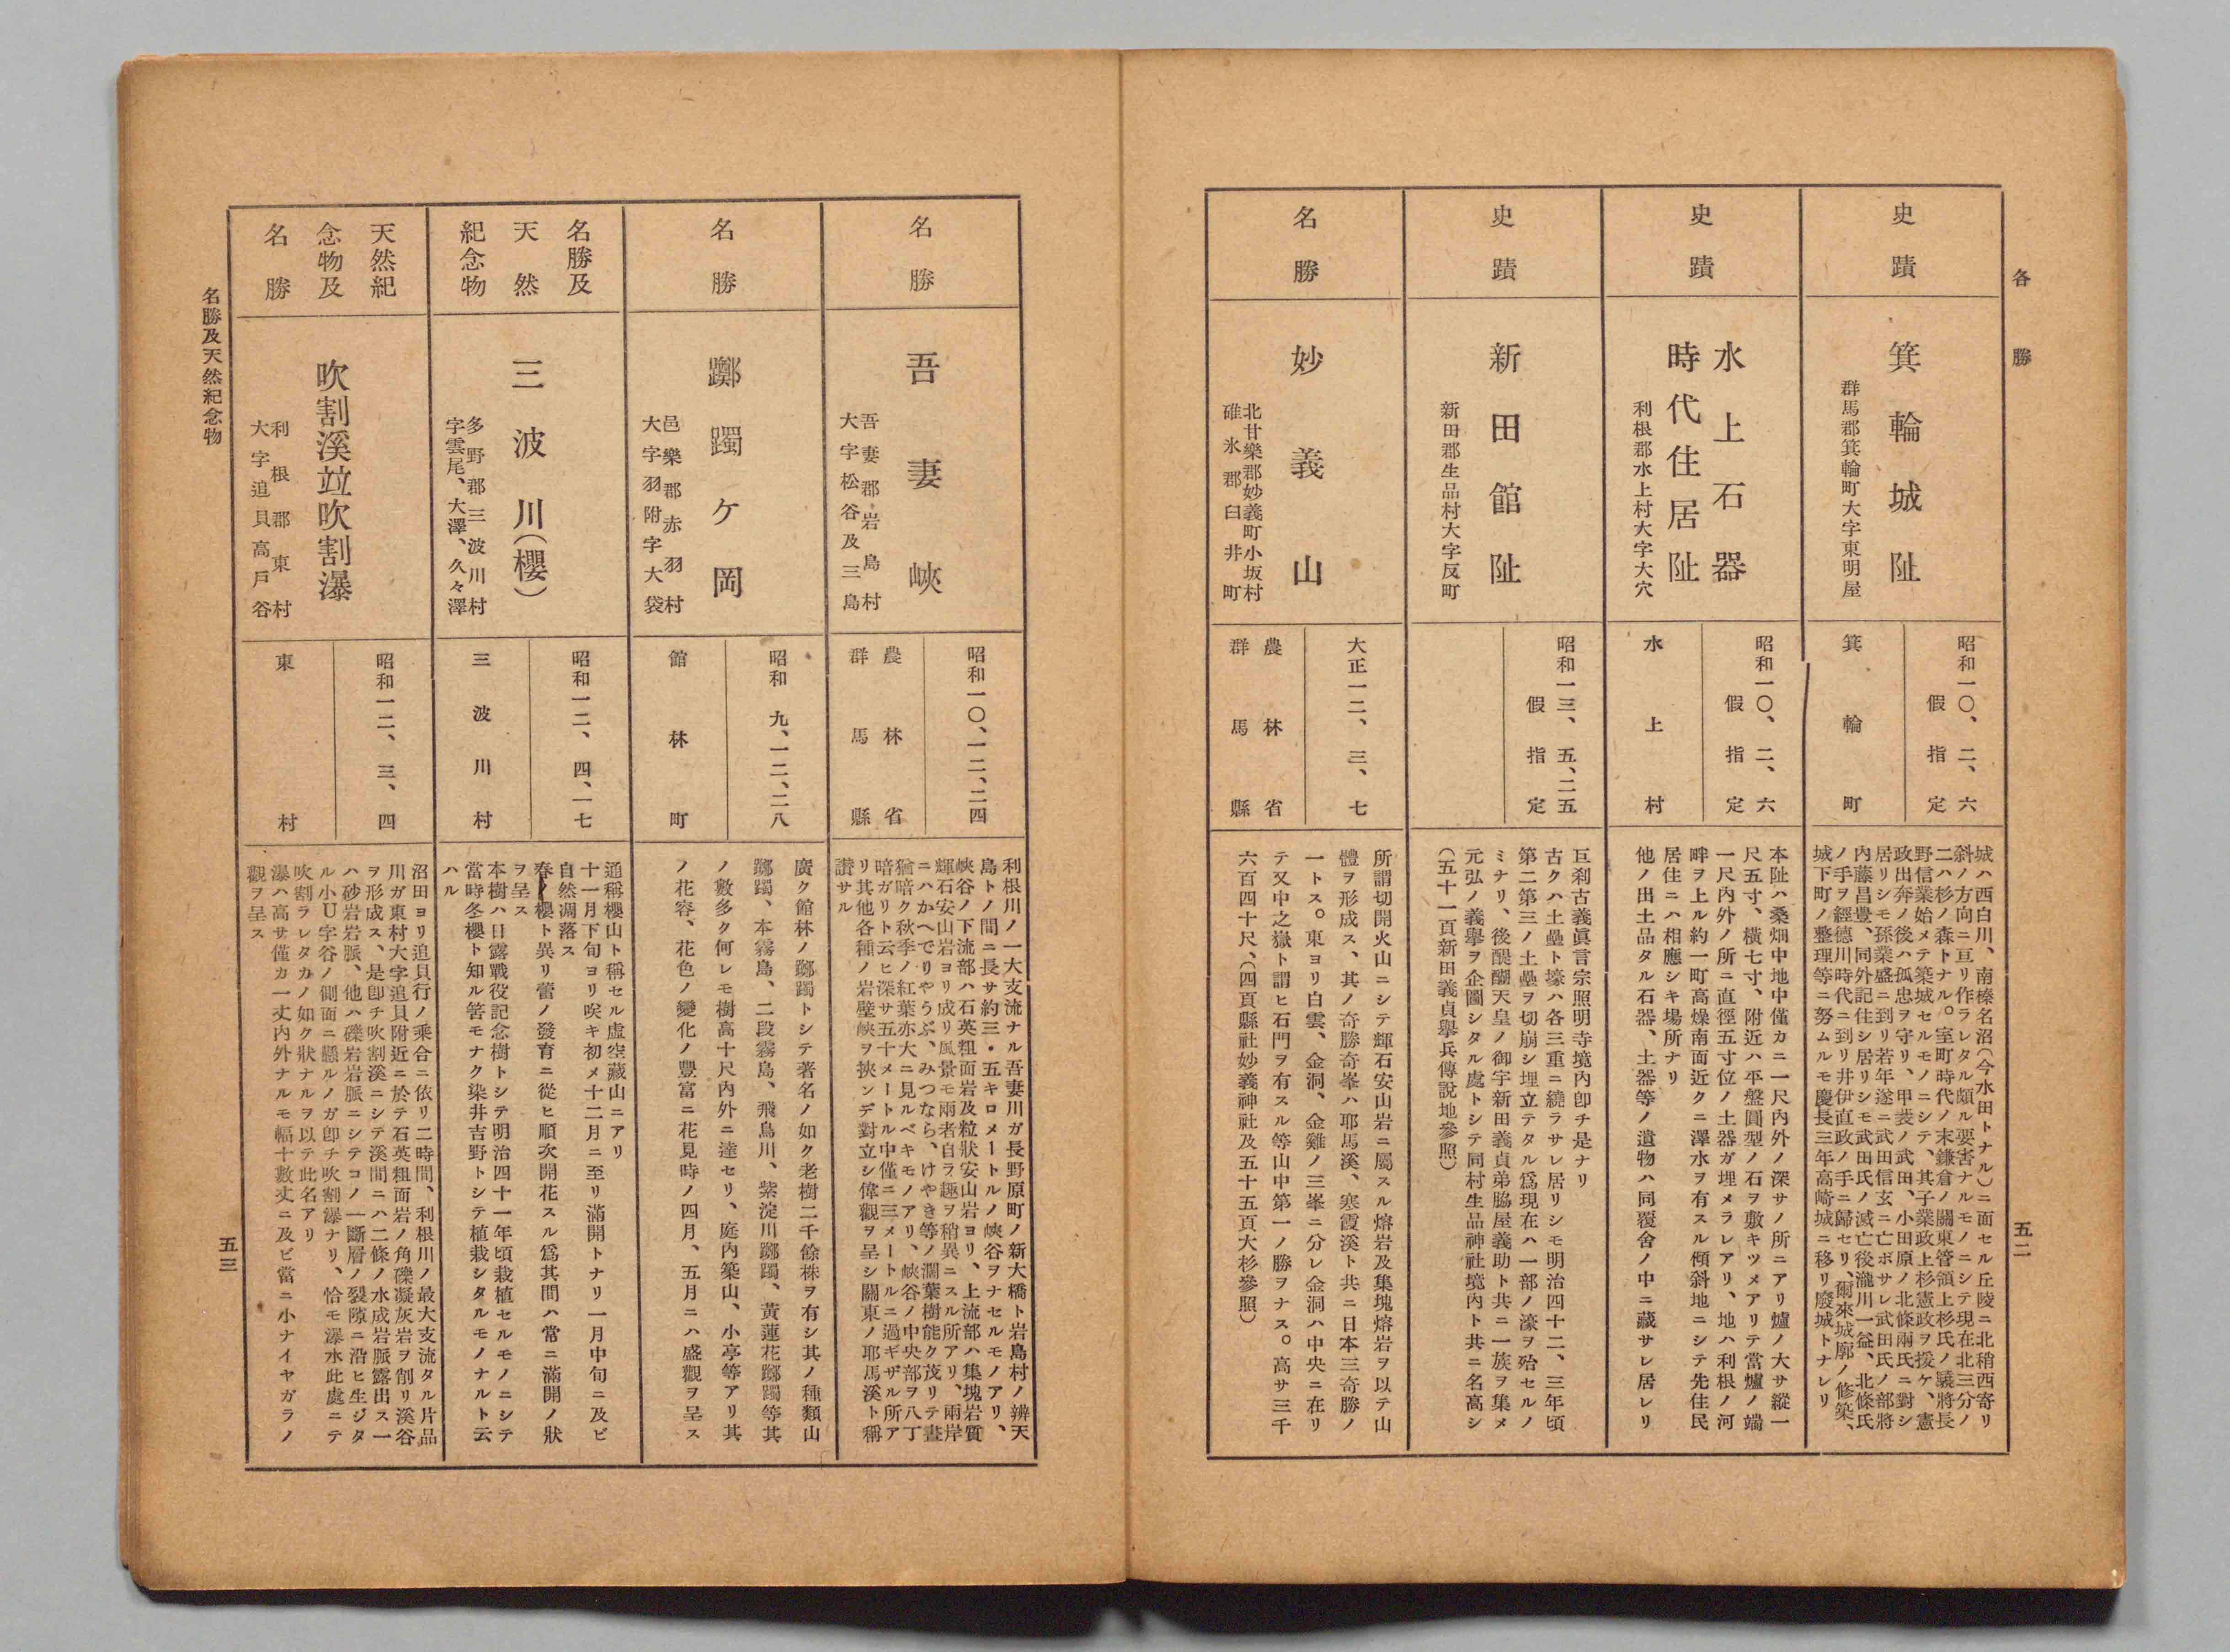 各勝
史蹟
箕輪城阯
群馬郡箕輪町大字東明屋
昭和一〇、二、六
假指定
箕輪町
城ハ西白川、南榛名沼(今水田トナル)ニ面セル丘陵ニ北稍西寄リ
斜ノ方向ニ亘リ作ラレタル頗ル要害ナルモノニシテ現在北三分ノ
二ハ杉ノ森トナル。室町時代ノ末鎌倉ノ關東管領上杉氏ノ驍將長
野信業始メテ築城セルモノニシテ、其子業政上杉憲政ヲ援ケ、憲
政出奔ノ後ハ孤忠ヲ守リ、甲斐ノ武田、小田原ノ北條兩氏ニ對シ
居リシモ孫業盛ニ到リ若年遂ニ武田信玄ニ亡ボサレ武田氏ノ部將
内藤昌豊、同外記住シ居リシモ武田氏ノ滅亡後瀧川一益、北條氏
ノ手ヲ經德川時代ニ到リ井伊直政ノ手ニ歸セリ、爾來城廓ノ修築、
城下町ノ整理等ニ努ムルモ慶長三年高崎城ニ移リ廢城トナレリ
史蹟
水上石器
時代住居阯
利根郡水上村大字大穴
昭和一〇、二、六
假指定
水上村
本阯ハ桑畑中地中僅カニ一尺内外ノ深サノ所ニアリ爐ノ大サ縱一
尺五寸、橫七寸、附近ハ平盤圓型ノ石ヲ敷キツメアリテ當爐ノ端
一尺内外ノ所ニ直徑五寸位ノ土器ガ埋メラレアリ、地ハ利根ノ河
畔ヲ上ル約一町高燥南面近クニ澤水ヲ有スル傾斜地ニシテ先住民
居住ニハ相應シキ場所ナリ
他ノ出土品タル石器、土器等ノ遺物ハ同覆舍ノ中ニ藏サレ居レリ
史蹟
新田館阯
新田郡生品村大字反町
昭和一三、五、二五
假指定
巨刹古義眞言宗照明寺境内卽チ是ナリ
古クハ土壘ト壕ハ各三重ニ繞ラサレ居リシモ明治四十二、三年頃
第二第三ノ土壘ヲ切崩シ埋立テタル爲現在ハ一部ノ濠ヲ殆セルノ
ミナリ、後醍醐天皇ノ御宇新田義貞弟脇屋義助ト共ニ一族ヲ集メ
元弘ノ義擧ヲ企圖シタル處トシテ同村生品神社境内ト共ニ名高シ
(五十一頁新田義貞擧兵傳說地參照)
名勝
妙義山
北甘樂郡妙義町小坂村
碓氷郡臼井町
大正一二、三、七
農林省
群馬縣
所謂切開火山ニシテ輝石安山岩ニ屬スル熔岩及集塊熔岩ヲ以テ山
體ヲ形成ス、其ノ奇勝奇峯ハ耶馬溪、寒霞溪ト共ニ日本三奇勝ノ
一トス。東ヨリ白雲、金洞、金雞ノ三峯ニ分レ金洞ハ中央ニ在リ
テ又中之嶽ト謂ヒ石門ヲ有スル等山中第一ノ勝ヲナス。高サ三千
六百四十尺、(四頁縣社妙義神社及五十五頁大杉參照)
五二
名勝
吾妻峽
吾妻郡岩島村
大字松谷及三島
昭和一〇、一二、二四
農林省
群馬縣
利根川ノ一大支流ナル吾妻川ガ長野原町ノ新大橋ト岩島村ノ辨天
島トノ間ニ長サ約三・五キロメートルノ峽谷ヲナセルモノアリ、
峽谷ノ下流部ハ石英粗面岩及粒狀安山岩ヨリ、上流部ハ集塊岩質
輝石安山岩ヨリ成リ風景モ兩者自ラ趣ヲ稍異ニスル所アリ、兩岸
ニハかへでりやうぶ、みつなら、けやき等ノ濶葉樹能ク茂リテ晝
猶暗ク秋季ノ紅葉亦大ニ見ルベキモノアリ、峽谷ノ中央部ヲ八丁
暗ガリト云ヒ深サ五十メートル中僅ニ三メートルニ過ギザル所ア
リ其他各種ノ岩壁峽ヲ挾ンデ對立シ偉觀ヲ呈シ關東ノ耶馬溪ト稱
讃サル
名勝
躑躅ケ岡
邑樂郡赤羽村
大字羽附字大袋
昭和九、一二、二八
館林町
廣ク館林ノ躑躅トシテ著名ノ如ク老樹二千餘株ヲ有シ其ノ種類山
躑躅、本霧島、二段霧島、飛鳥川、紫淀川躑躅、黃蓮花躑躅等其
ノ數多ク何レモ樹高十尺内外ニ達セリ、庭内築山、小亭等アリ其
ノ花容、花色ノ變化ノ豐富ニ花見時ノ四月、五月ニハ盛觀ヲ呈ス
名勝及
天然
紀念物
三波川(櫻)
多野郡三波川村
字雲尾、大澤、久々澤
昭和一二、四、一七
三波川村
通稱櫻山ト稱セル虛空藏山ニアリ
十一月下旬ヨリ咲キ初メ十二月ニ至リ滿開トナリ一月中旬ニ及ビ
自然凋落ス
春ノ櫻ト異リ蕾ノ發育ニ從ヒ順次開花スル爲其間ハ常ニ滿開ノ狀
ヲ呈ス
本樹ハ日露戰役記念樹トシテ明治四十一年頃栽植セルモノニシテ
當時冬櫻ト知ル筈モナク染井吉野トシテ植栽シタルモノナルト云
ハル
天然紀
念物及
名勝
吹割溪竝吹割瀑
利根郡東村
大字追貝高戸谷
昭和一二、三、四
東村
沼田ヨリ追貝行ノ乘合ニ依リ二時間、利根川ノ最大支流タル片品
川ガ東村大字追貝附近ニ於テ石英粗面岩ノ角礫凝灰岩ヲ削リ溪谷
ヲ形成ス、是卽チ吹割溪ニシテ溪間ニハ二條ノ水成岩脈露出ス一
ハ砂岩岩脈、他ハ礫岩岩脈ニシテコノ一斷層ノ裂隙ニ沿ヒ生ジタ
ル小U字谷ノ側面ニ懸ルノガ卽チ吹割瀑ナリ、恰モ瀑水此處ニテ
吹割ラレタカノ如ク狀ナルヲ以テ此名アリ
瀑ハ高サ僅カ一丈内外ナルモ幅十數丈ニ及ビ當ニ小ナイヤガラノ
觀ヲ呈ス
名勝及天然紀念物
五三